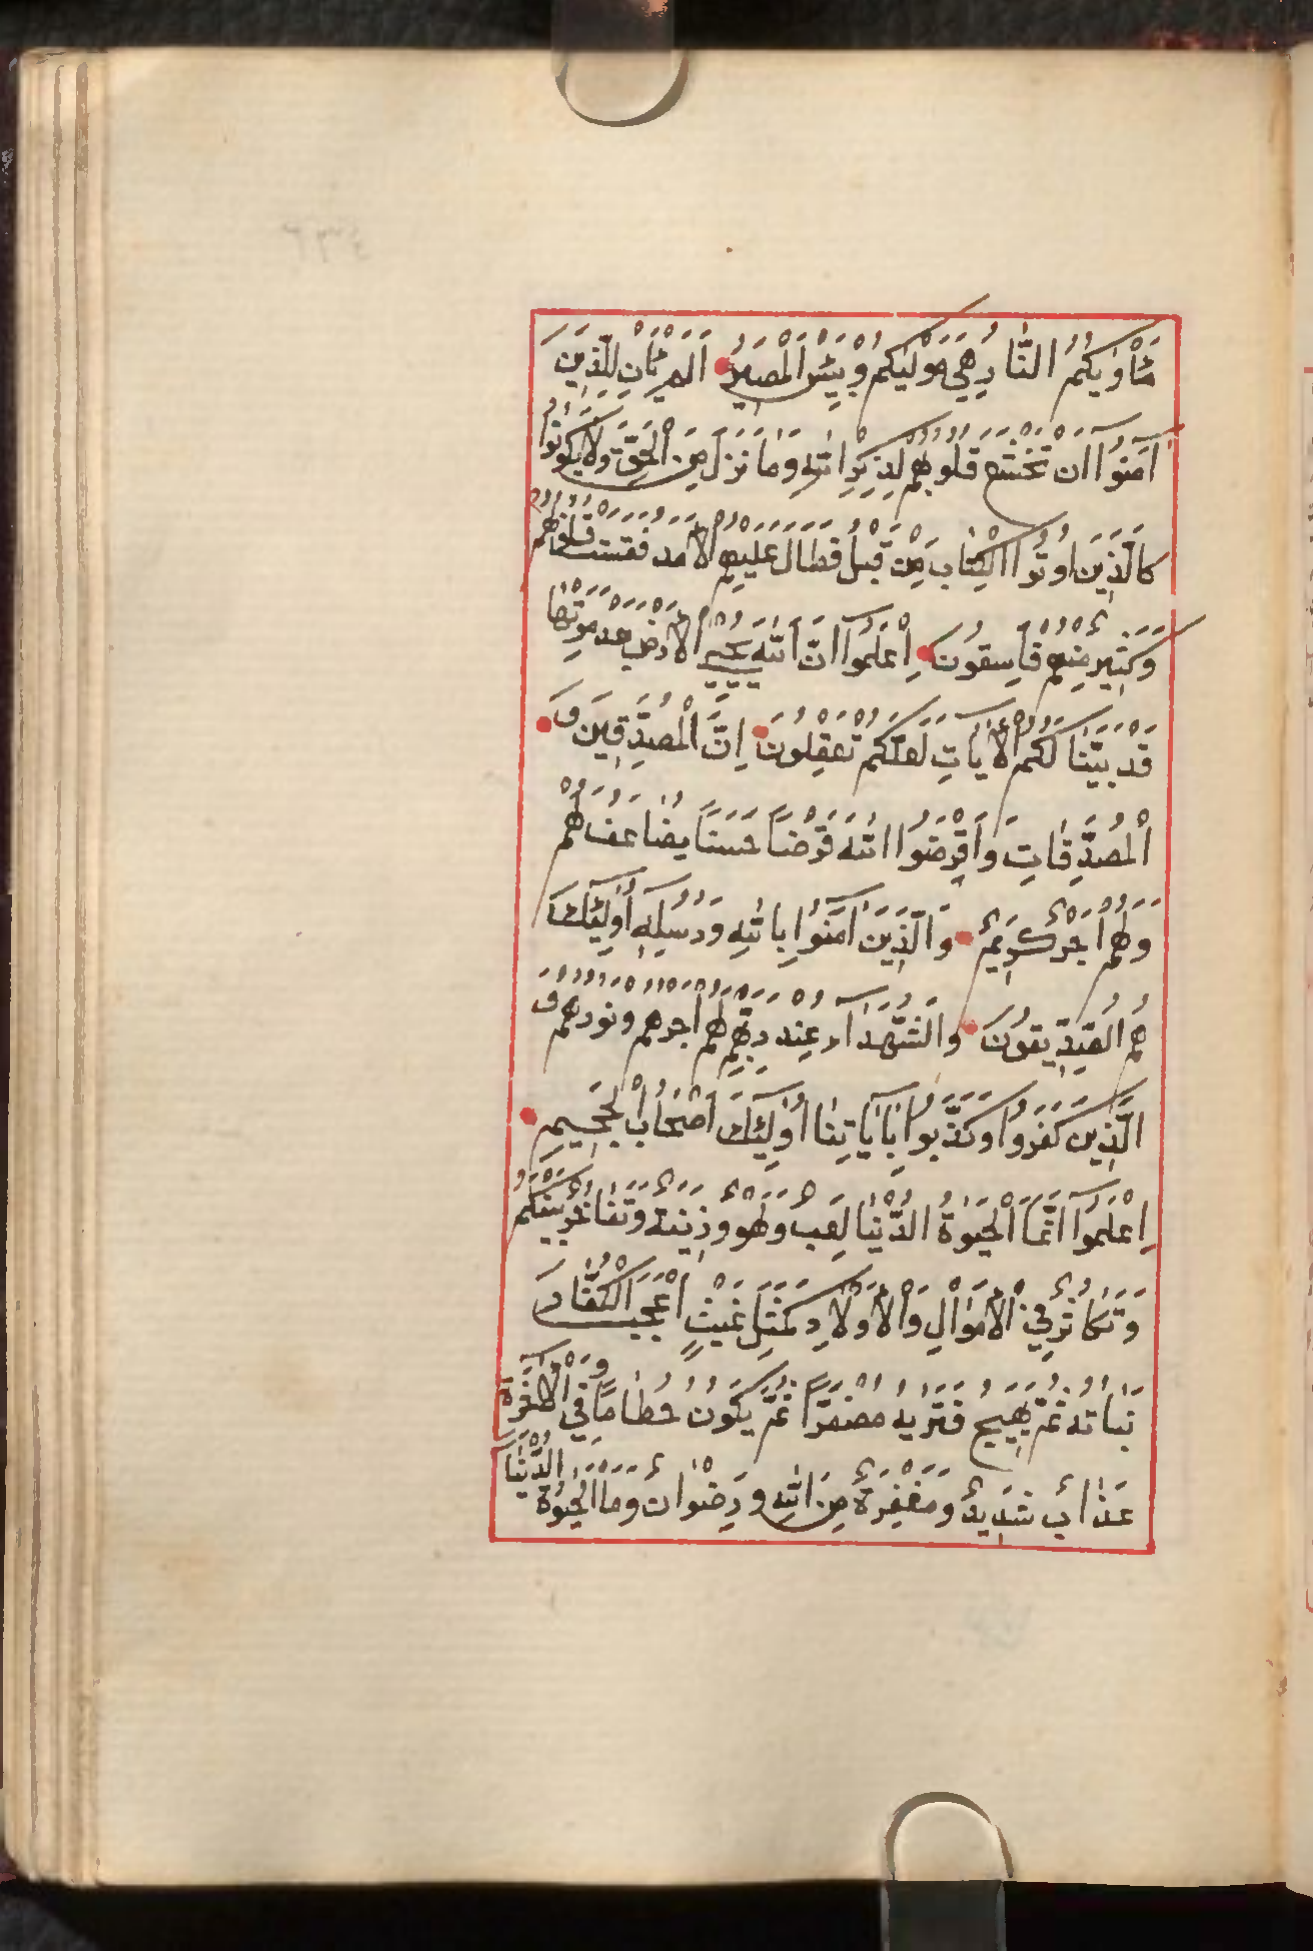 مَأْوٰيكُمُ النَّارُ هِيَ مَوْلٰيكُمْ وَبِئْسَ الْمَصِيرُ اَلَمْ يَأْنِ لِلَّذِينَ
اٰمَنُوا اَنْ تَخْشَعَ قُلُوبُهُمْ لِذِكْرِ اللّٰهِ وَمَا نَزَلَ مِنَ الْحَقِّ وَلَا يَكُونُوا
كَالَّذِينَ اُوتُوا الْكِتَابَ مِنْ قَبْلُ فَطَالَ عَلَيْهِمُ الْاَمَدُ فَقَسَتْ قُلُوبُهُمْ
وَكَثِيرٌ مِنْهُمْ فَاسِقُونَ اِعْلَمُوا اَنَّ اللّٰهَ يُحْيِي الْاَرْضَ بَعْدَ مَوْتِهَا
قَدْ بَيَّنَّا لَكُمُ الْاٰيَاتِ لَعَلَّكُمْ تَعْقِلُونَ اِنَّ الْمُصَّدِّقِينَ وَ
الْمُصَّدِّقَاتِ وَاَقْرَضُوا اللّٰهَ قَرْضًا حَسَنًا يُضَاعَفُ لَهُمْ
وَلَهُمْ اَجْرٌ كَرِيمٌ وَالَّذِينَ اٰمَنُوا بِاللّٰهِ وَرُسُلِهِ اُولٰئِكَ
هُمُ الصِّدِّيقُونَ وَالشُّهَدَاءُ عِنْدَ رَبِّهِمْ لَهُمْ اَجْرُهُمْ وَنُورُهُمْ وَ
الَّذِينَ كَفَرُوا وَكَذَّبُوا بِاٰيَاتِنَا اُولٰئِكَ اَصْحَابُ الْجَحِيمِ
اِعْلَمُوا اَنَّمَا الْحَيٰوةُ الدُّنْيَا لَعِبٌ وَلَهْوٌ وَزِينَةٌ وَتَفَاخُرٌ بَيْنَكُمْ
وَتَكَاثُرٌ فِي الْاَمْوَالِ وَالْاَوْلَادِ كَمَثَلِ غَيْثٍ اَعْجَبَ الْكُفَّارَ
نَبَاتُهُ ثُمَّ يَهِيجُ فَتَرٰيهُ مُصْفَرًّا ثُمَّ يَكُونُ حُطَامًا وَفِي الْاٰخِرَةِ
عَذَابٌ شَدِيدٌ وَمَغْفِرَةٌ مِنَ اللّٰهِ وَرِضْوَانٌ وَمَا الْحَيٰوةُ الدُّنْيَا